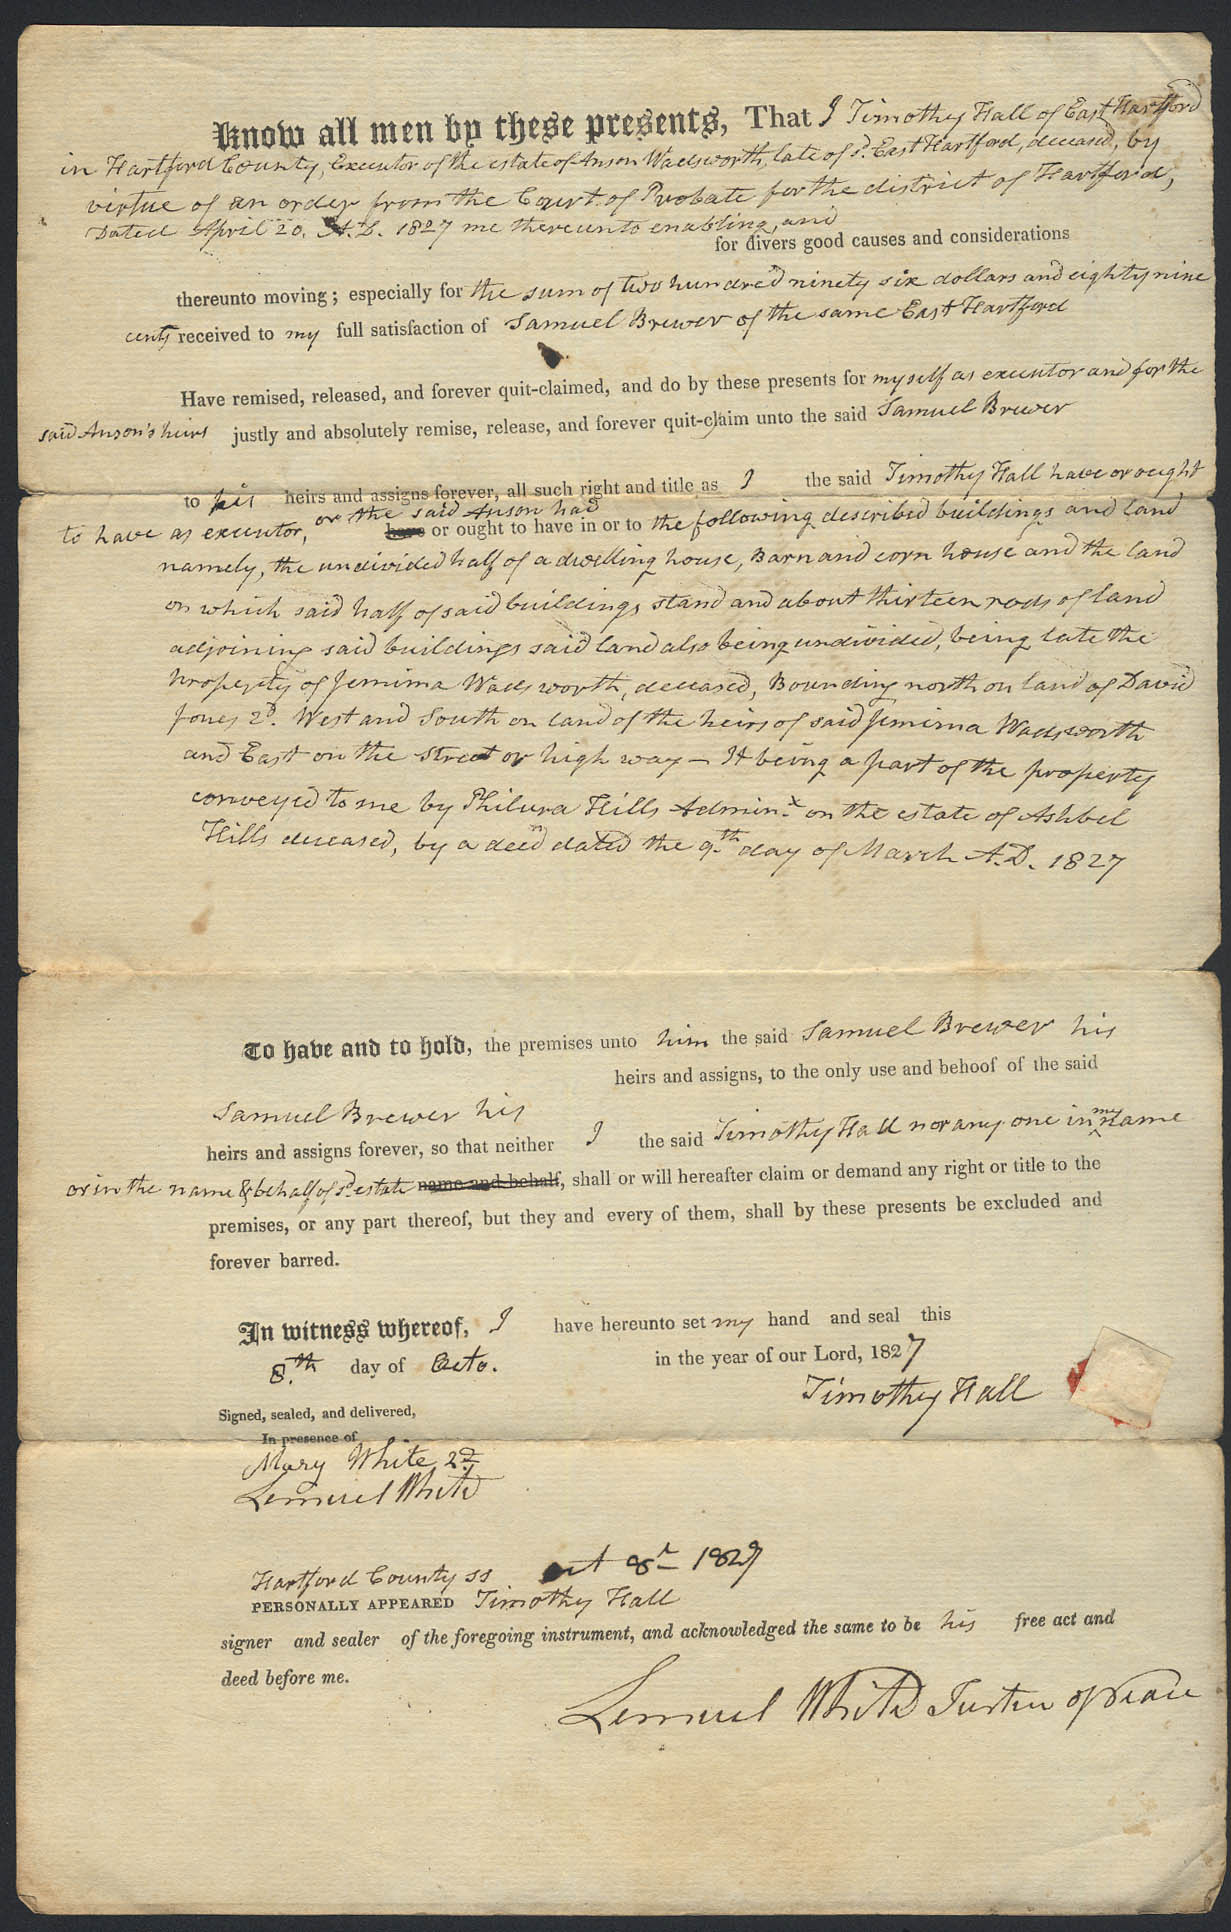 Know all men by these presents, That I Timothy Hall of East Hartford
in Hartford County, Executor of the estate of Anson Wadsworth, late of sd. East Hartford, deceased, by
virtue of an order from the Court of Probate for the district of Hartford,
Dated April 20. A.D. 1827 me thereunto enabling, and
for divers good causes and considerations
thereunto moving; especially for the sum of two hundred ninety six dollars and eighty nine
cents received to my full satisfaction of Samuel Brewer of the same East Hartford
Have remised, released, and forever quit-claimed, and do by these presents for myself as executor and for the
said Anson's heirs justly and absolutely remise, release, and forever quit-claim unto the said Samuel Brewer
to his heirs and assigns forever, all such right and title as I the said Timothy Hall have or ought
to have as executor, or the said Anson had have or ought to have in or to the following described buildings and land
namely, the undivided half of a dwelling house, Barn and corn house and the land
on which said half of said buildings stand and about thirteen rods of land
adjoining said buildings said land also being undivided, being late the
property of Jemima Wadsworth, deceased, Bounding north on land of David
Jones 2d. West and South on land of the heirs of said Jemima Wadsworth
and East on the street or high way — It being a part of the property
conveyed to me by Philura Hills Adminx. on the estate of Ashbel
Hills deceased, by a deed dated the 9th. day of March A.D. 1827
To have and to hold, the premises unto him the said Samuel Brewer his
heirs and assigns, to the only use and behoof of the said
Samuel Brewer his
heirs and assigns forever, so that neither I the said Timothy Hall nor any one in my name
or in the name & behalf of sd. estate name and behalf, shall or will hereafter claim or demand any right or title to the
premises, or any part thereof, but they and every of them, shall by these presents be excluded and
forever barred.
In witness whereof, I have hereunto set my hand and seal this
8.th day of Octo. in the year of our Lord, 1827
Timothy Hall
Signed, sealed, and delivered,
In presence of
Mary White 2d.
Lemuel White
Hartford County ss oct 8th 1827
PERSONALLY APPEARED Timothy Hall
signer and sealer of the foregoing instrument, and acknowledged the same to be his free act and
deed before me.
Lemuel White Justice of Peace